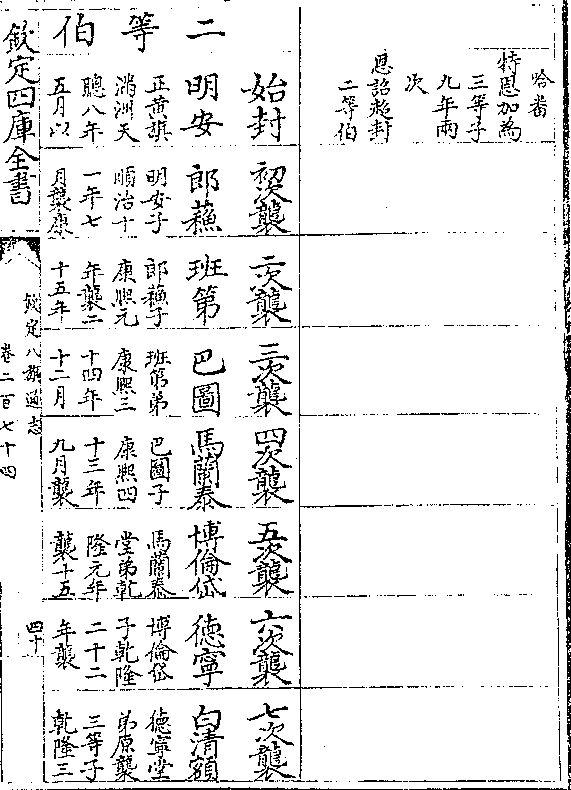 哈番
特恩加為
三等子
九年兩
次
恩詔超封
二等伯
始封
初次襲
二次襲
三次襲
四次襲
五次襲
六次襲
七次襲
二等伯
明安
正黃旗
滿洲天
聰八年
五月以
郎蘓
明安子
順治十
一年七
月襲康
班第
郎蘓子
康熙元
年襲二
十五年
巴圖
班第弟
康熙三
十四年
十二月
馬蘭泰
巴圖子
康熙四
十三年
九月襲
博倫岱
馬蘭泰
堂弟乾
隆元年
襲十五
德寧
博倫岱
子乾隆
二十二
年襲
白清額
德寧堂
弟原襲
三等子
乾隆三
欽定四庫全書
欽定八旗通志
卷二百七十四
四十